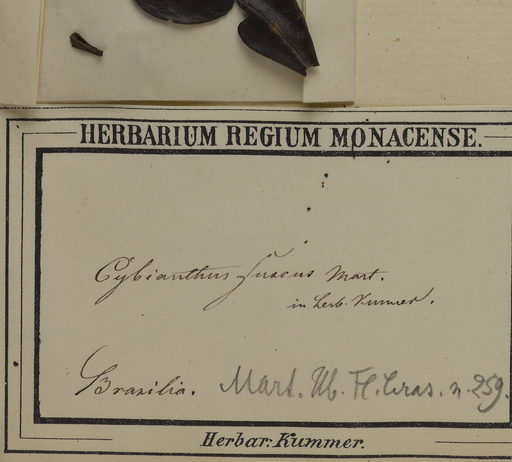 HERBARIUM REGIUM MONACENSE.
Cybianthus fuscus Mart.
in herb. Kummer.
Brasilia. Mart. Hb. Fl. bras. n. 259.
Herbar: Kummer.